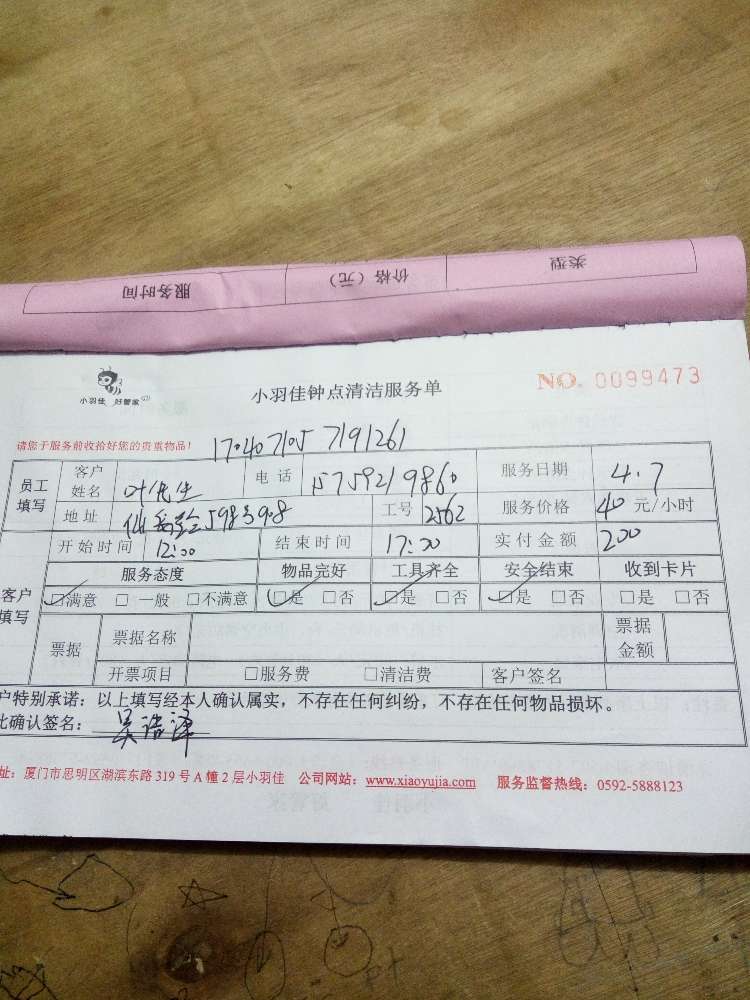 类型 价格（元） 服务时间
小羽佳 好管家
小羽佳钟点清洁服务单
NO. 0099473
请您于服务前收拾好您的贵重物品！
1704071057191261
员工填写 客户姓名 叶先生 电话 15759219860 服务日期 4.7
地址 598号908 工号 2562 服务价格 40 元/小时
开始时间 12:00 结束时间 17:00 实付金额 200
客户填写 服务态度 物品完好 工具齐全 安全结束 收到卡片
☑满意 □一般 □不满意 ☑是 □否 ☑是 □否 ☑是 □否 □是 □否
票据 票据名称 票据金额
开票项目 □服务费 □清洁费 客户签名
户特别承诺：以上填写经本人确认属实，不存在任何纠纷，不存在任何物品损坏。
此确认签名：吴浩泽
址：厦门市思明区湖滨东路 319 号 A 幢 2 层小羽佳 公司网站：www.xiaoyujia.com 服务监督热线：0592-5888123